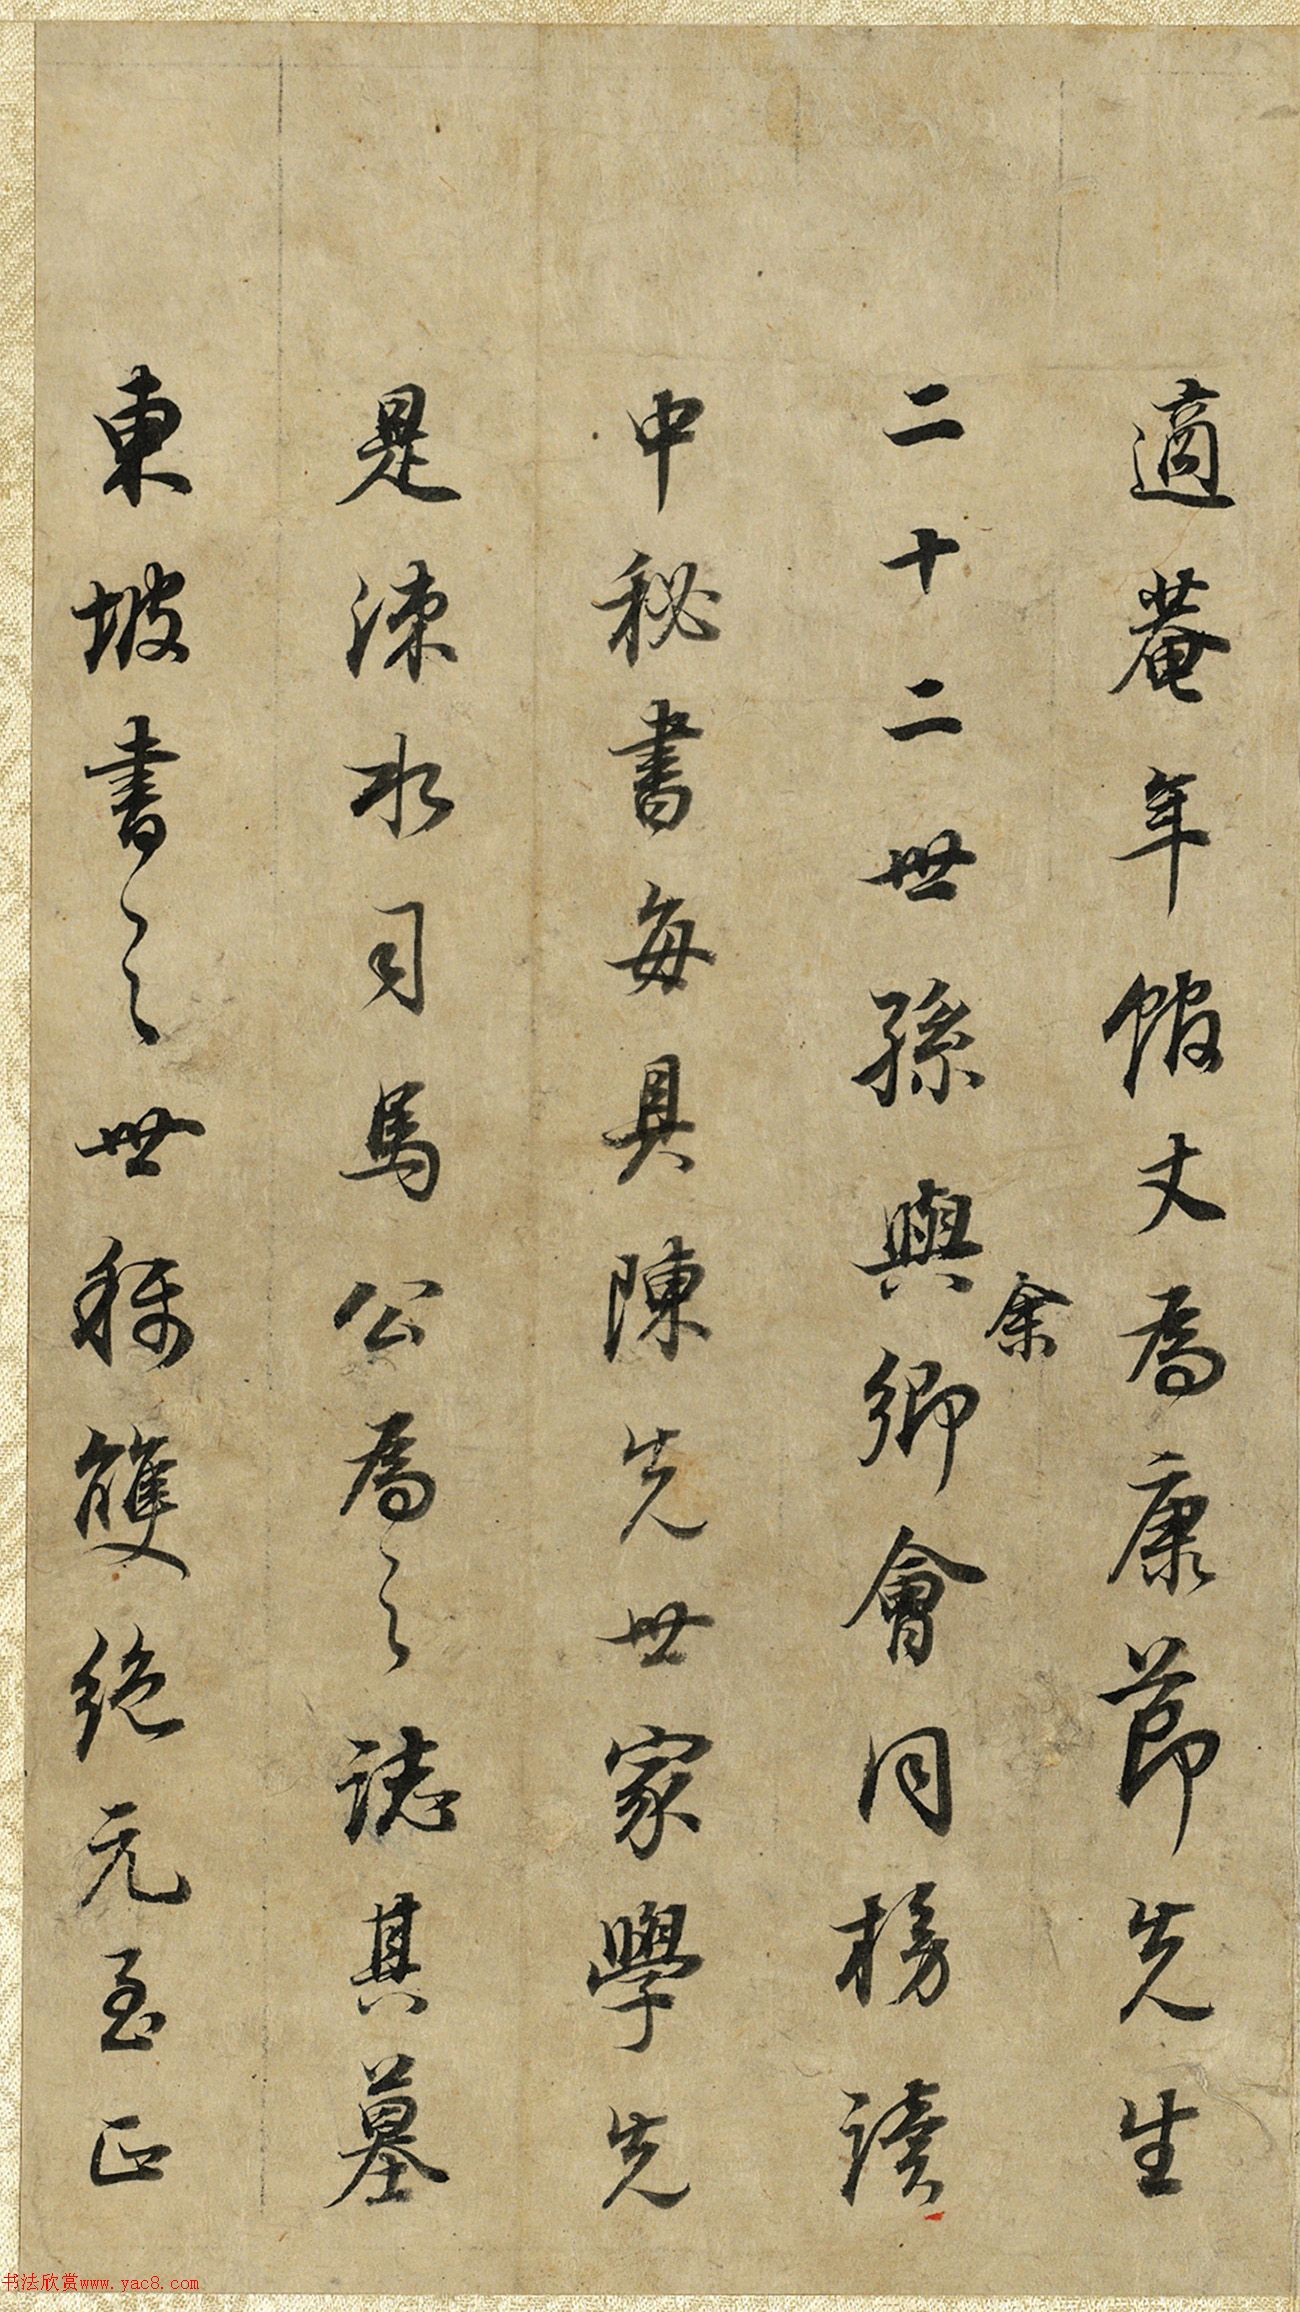 適菴年館丈為康節先生
二十二世孫與余卿會同榜讀
中秘書每具陳先世家學先
是涑水司馬公為之誌其墓
東坡書之世稱雙絕元至正
书法欣赏www.yac8.com